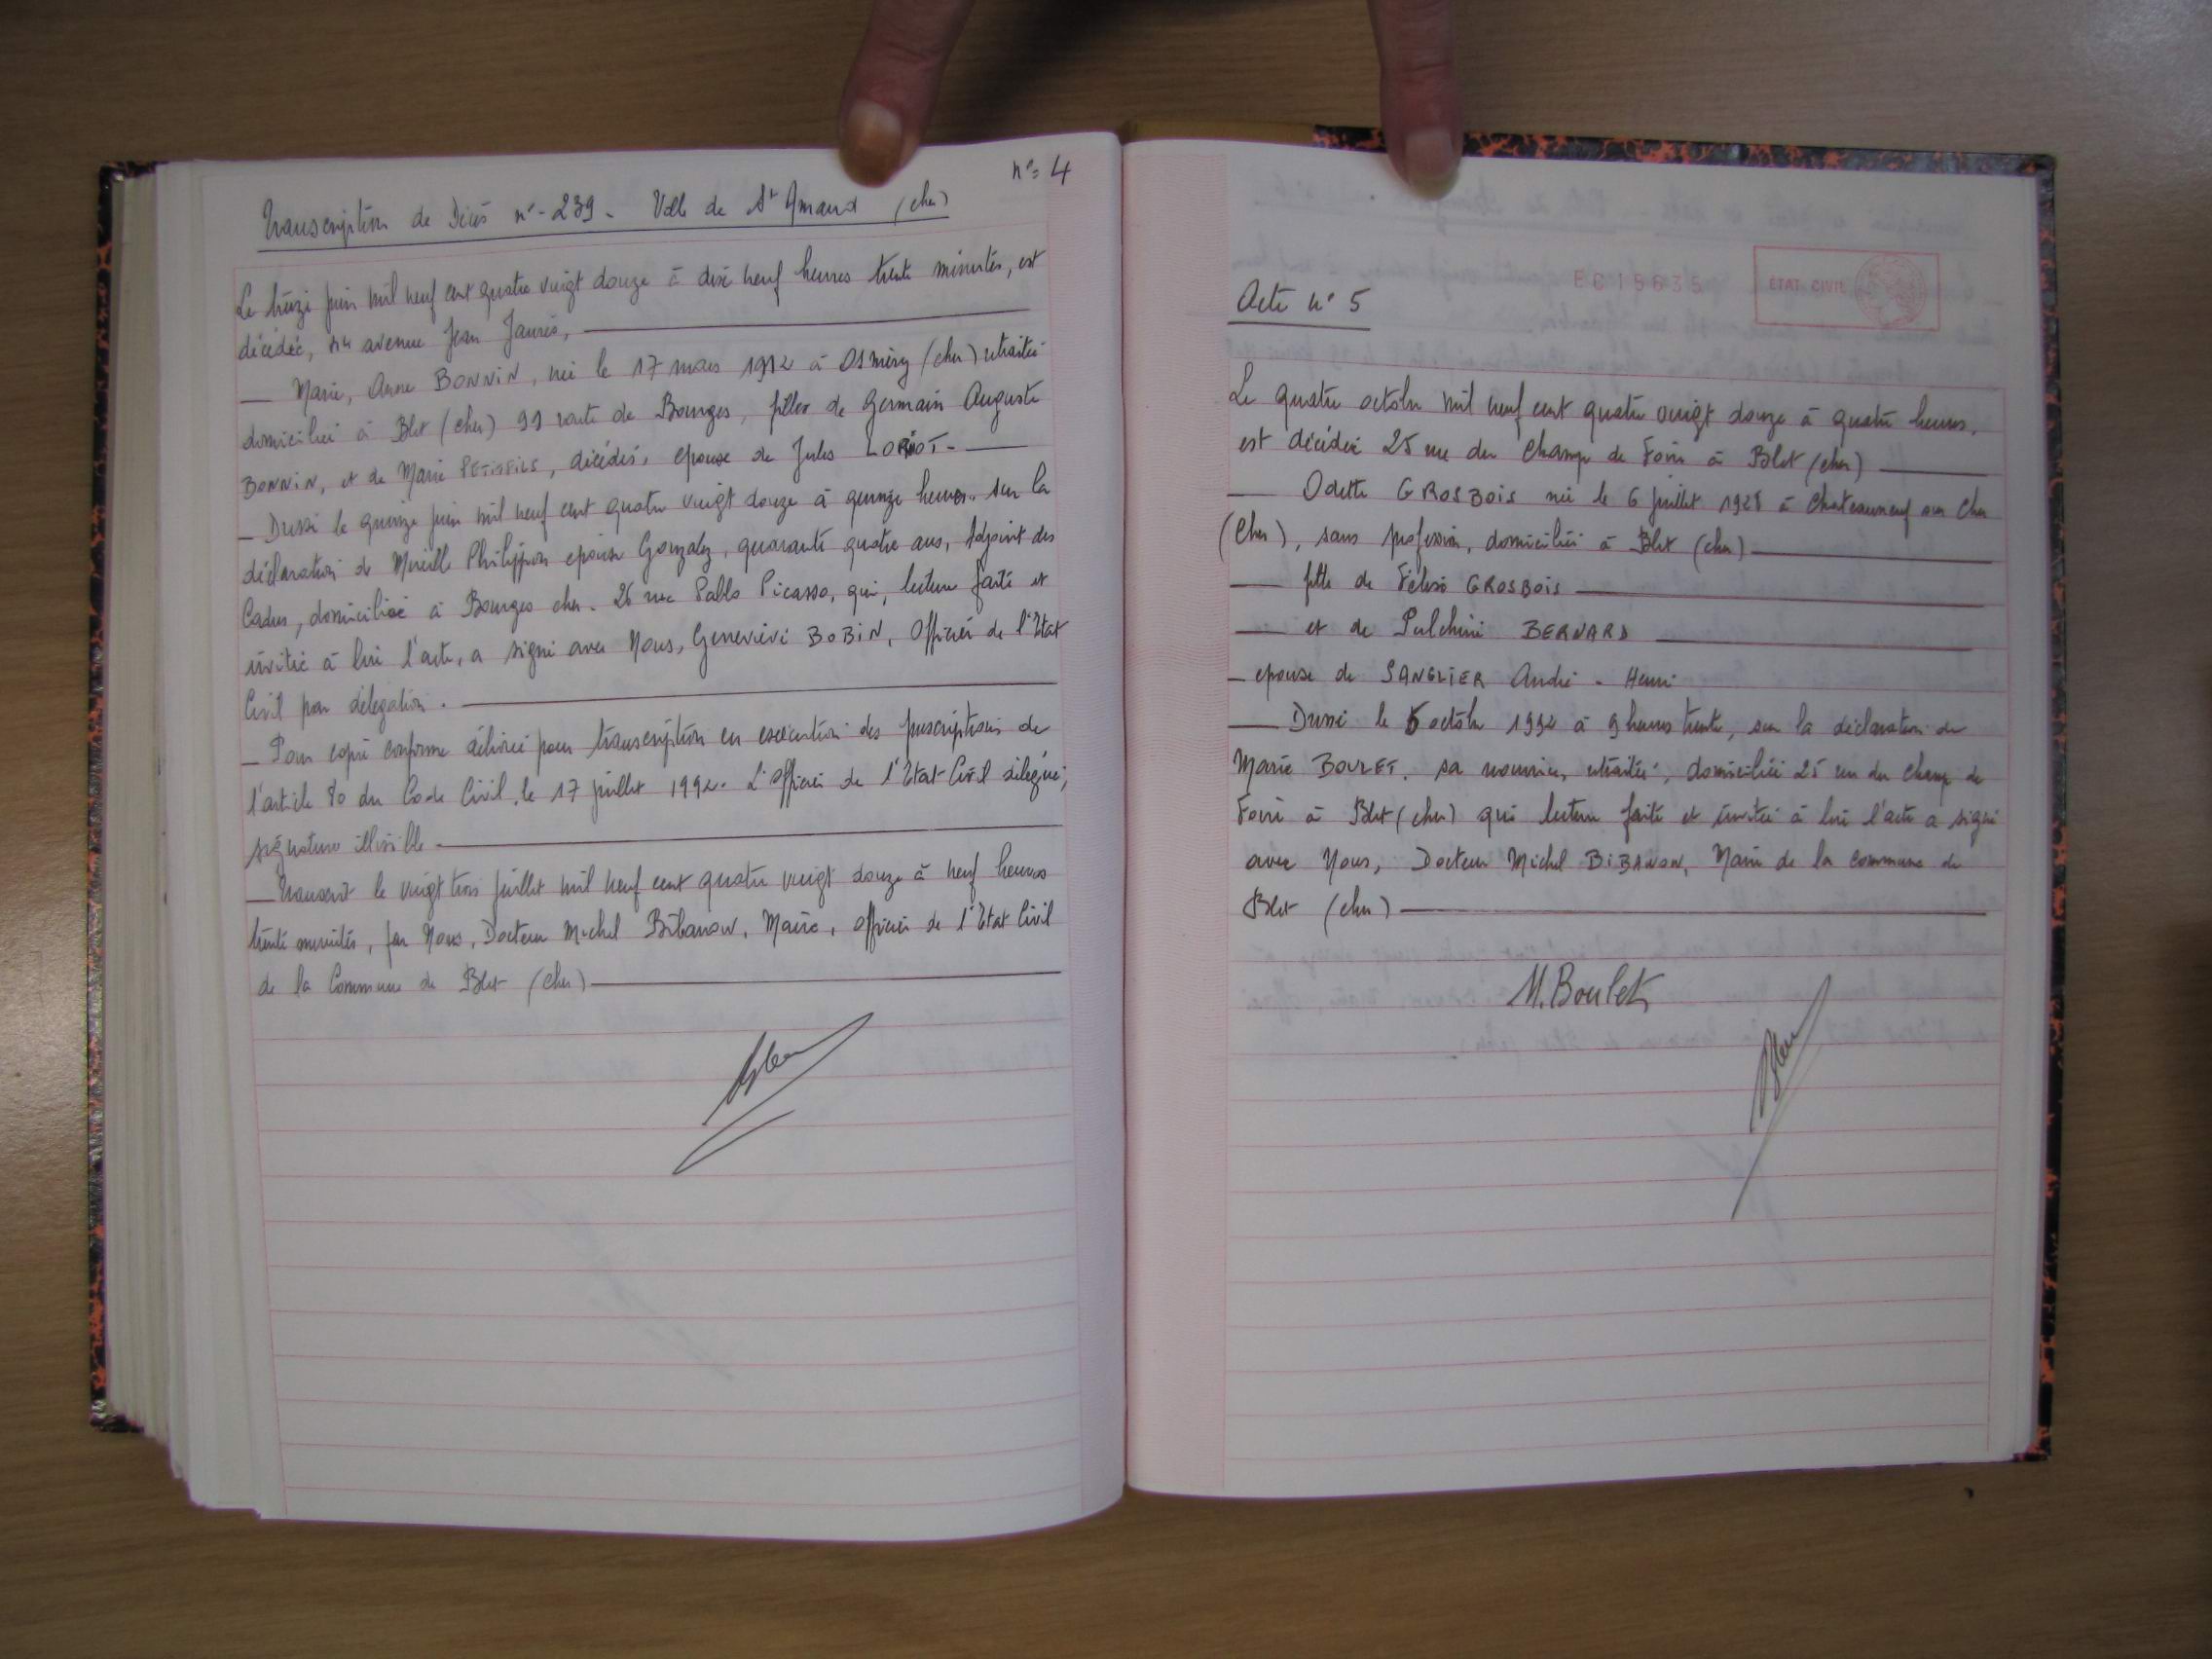 n°= 4
Transcription de Décès n°-239. Ville de St Amand (cher)
Le treize juin mil neuf cent quatre vingt douze à dix neuf heures trente minutes, est
décédée, avenue Jean Jaurès,
Marie, Anne BONNIN, née le 17 mars 1912 à Osmery (cher) retraitée
domiciliée à Blet (cher) 99 route de Bourges, fille de Germain Auguste
BONNIN, et de Marie PETISFILS, décédés, epouse de Jules LORIOT.
Dressé le quinze juin mil neuf cent quatre vingt douze à quinze heures. sur la
déclaration de Mireille Philippon epouse Gonzalez, quarante quatre ans, Adjoint des
Cadres, domiciliée à Bourges cher. 26 rue Pablo Picasso, qui, lecture faite et
invitée à lire l'acte, a signé avec Nous, Geneviève BOBIN, Officier de l'Etat
Civil par délégation.
Pour copie conforme délivrée pour transcription en exécution des prescriptions de
l'article 80 du Code Civil, le 17 juillet 1992. L'officier de l'Etat-Civil délégué,
signature illisible
Transcrit le vingt trois juillet mil neuf cent quatre vingt douze à neuf heures
trente minutes, par Nous, Docteur Michel Bibanow, Maire, officier de l'Etat Civil
de la Commune de Blet (Cher)
EC15635
ETAT CIVIL
Acte n° 5
Le quatre octobre mil neuf cent quatre vingt douze à quatre heures,
est décédée 25 rue du Champ de Foire à Blet (cher)
Odette GROSBOIS née le 6 juillet 1928 à Chateauneuf sur Cher
(Cher), sans profession, domiciliée à Blet (cher)
fille de GROSBOIS
et de Pulchérie BERNARD
epouse de SANGLIER André - Henri
Dressé le 5 octobre 1992 à 9 heures trente, sur la déclaration de
Marie BOULET, sa nourrice, retraitée, domiciliée 25 rue du Champ de
Foire à Blet (cher) qui lecture faite et invitée à lire l'acte a signé
avec Nous, Docteur Michel BIBANOW, Maire de la commune de
Blet (cher)
M. Boulet